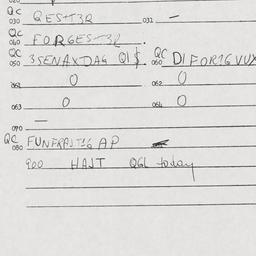 QC 030 QEST3Q 031 —
QC 040 FORGEST3Q.
QC 050 3SENAXDAG QI$. QC 060 DIFOR16VUX
061 0 062 0
063 0 064 0
070 —
QC 080 FUNFRAJT16 AP
900 HAJT QGL today